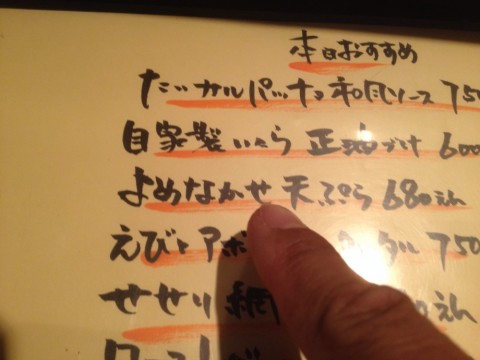 本日おすすめ
たこカルパッチョ和風ソース 750
自家製いくら正油づけ 600
よめなかせ天ぷら 680えん
えびとアボ タル 750
せせり網 0えん
ロースト